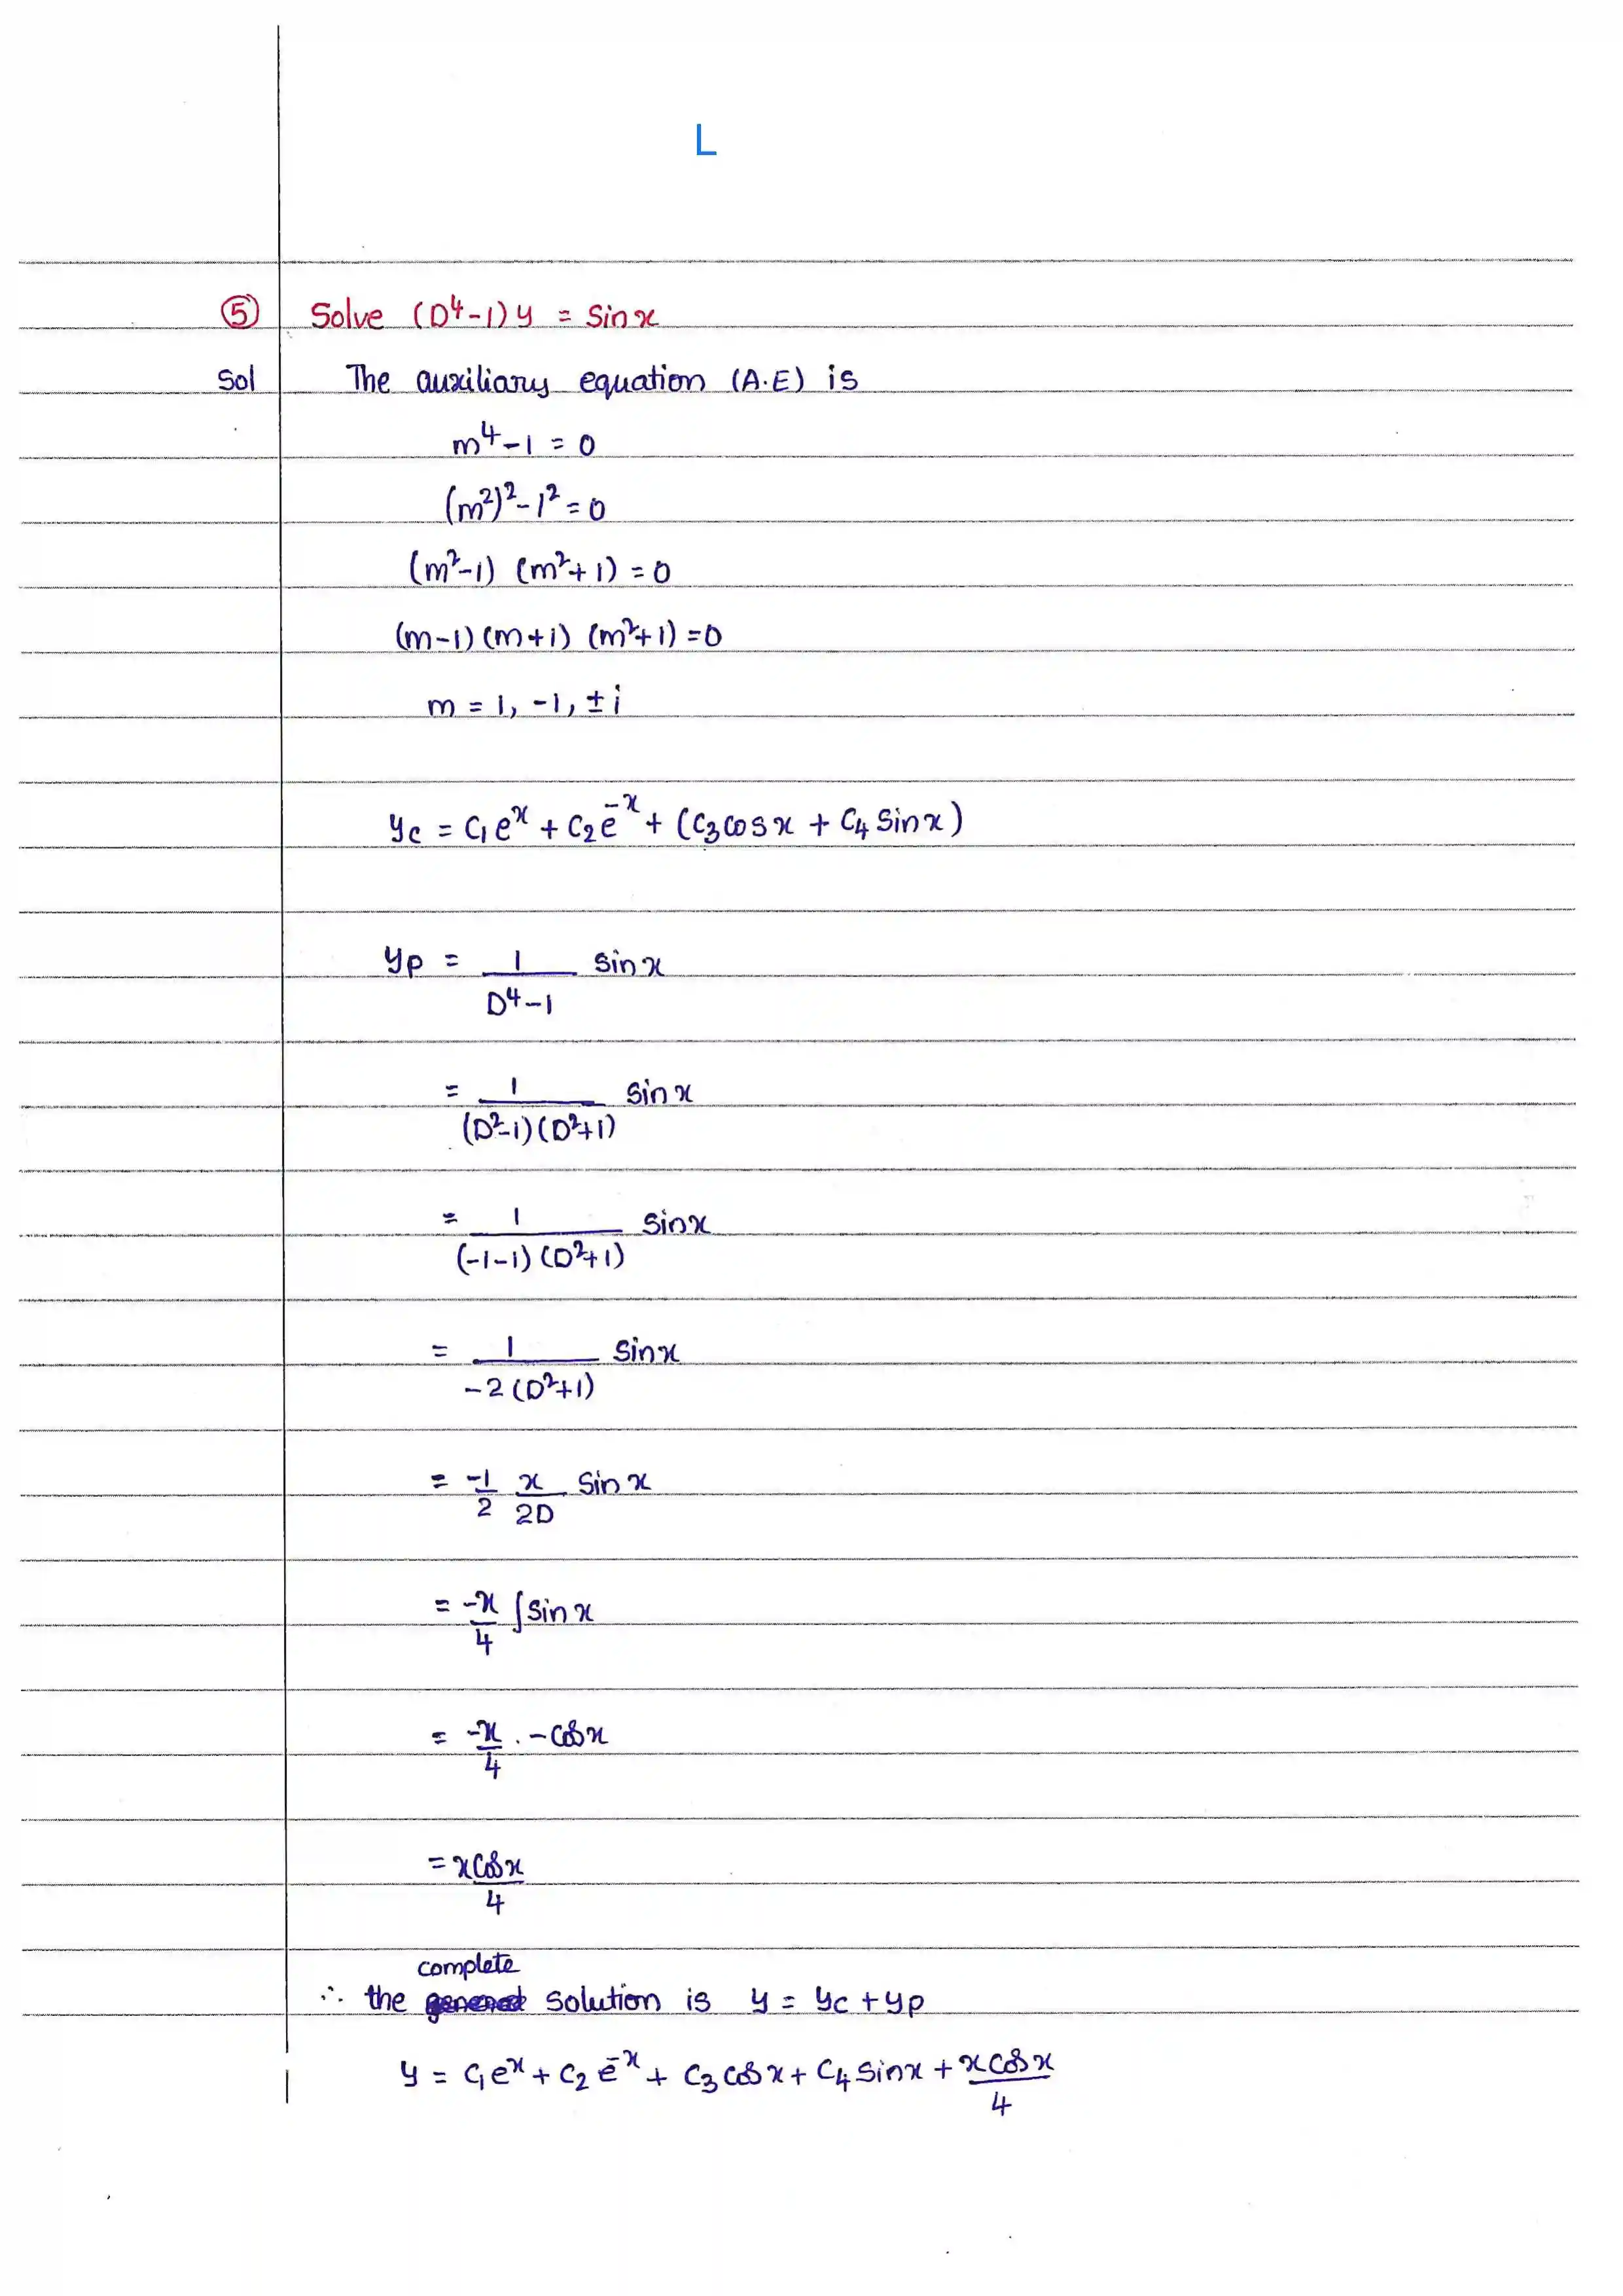 L
⑤ Solve (D⁴-1)y = Sinx
Sol The auxiliary equation (A.E) is
m⁴-1 = 0
(m²)²-1² = 0
(m²-1) (m²+1) = 0
(m-1)(m+1) (m²+1) = 0
m = 1, -1, ±i
yc = C₁eˣ + C₂e⁻ˣ + (C₃cosx + C₄Sinx)
yp = 1/(D⁴-1) Sinx
= 1/((D²-1)(D²+1)) Sinx
= 1/((-1-1)(D²+1)) Sinx
= 1/(-2(D²+1)) Sinx
= -1/2 x/2D Sinx
= -x/4 ∫Sinx
= -x/4 . -Cosx
= xCosx/4
complete
∴ the solution is y = yc + yp
y = C₁eˣ + C₂e⁻ˣ + C₃Cosx + C₄Sinx + xCosx/4